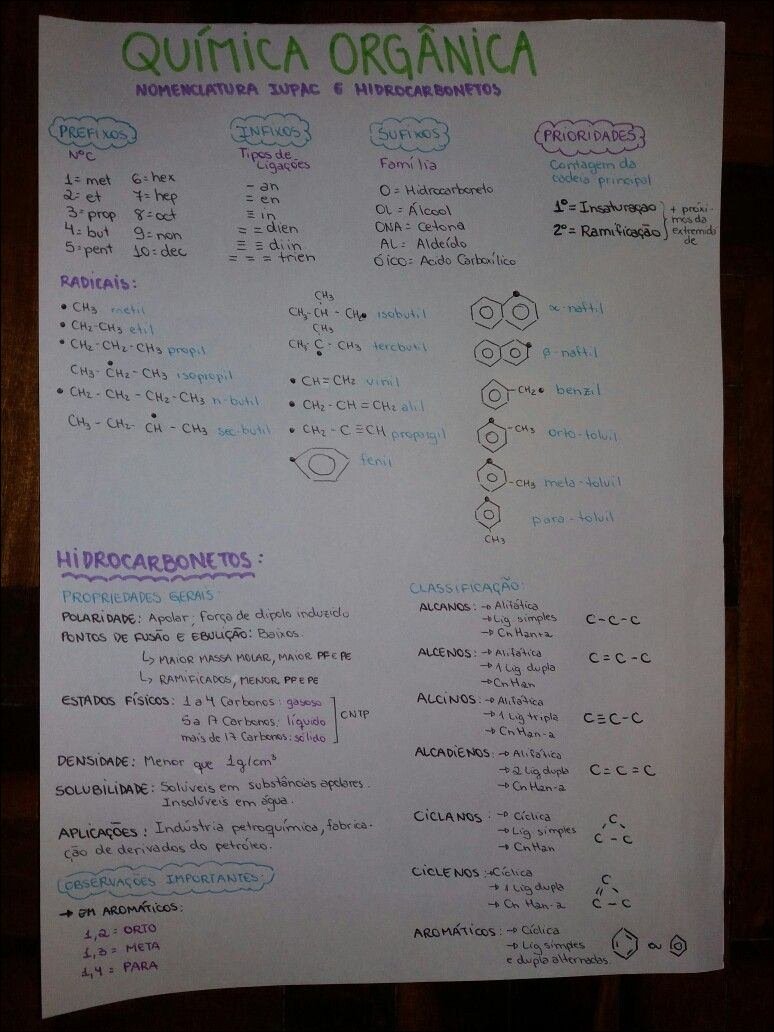 QUÍMICA ORGÂNICA
NOMENCLATURA IUPAC E HIDROCARBONETOS
PREFIXOS
N°C
1= met 6= hex
2= et 7= hep
3= prop 8= oct
4= but 9= non
5= pent 10= dec
INFIXOS
Tipos de
Ligações
- an
= en
≡ in
= = dien
≡ ≡ diin
= = = trien
SUFIXOS
Família
O = Hidrocarboneto
OL = Álcool
ONA = Cetona
AL = Aldeído
ÓICO = Acido Carboxílico
PRIORIDADES
Contagem da
cadeia principal
1º = Insaturação
2º = Ramificação
+ próxi-
mos da
extremida
de
RADICAIS:
• CH3 metil
• CH2-CH3 etil
• CH2-CH2-CH3 propil
CH3-ĊH2-CH3 isopropil
• CH2-CH2-CH2-CH3 n-butil
CH3-CH2-ĊH-CH3 sec-butil
CH3
CH3-CH-CH2• isobutil
CH3
CH3-C-CH3 tercbutil
•
• CH=CH2 vinil
• CH2-CH=CH2 alil
• CH2-C≡CH propargil
fenil
α-naftil
β-naftil
-CH2• benzil
-CH3 orto-toluil
-CH3 meta-toluil
para-toluil
CH3
HIDROCARBONETOS:
PROPRIEDADES GERAIS:
POLARIDADE: Apolar; Força de dipolo induzido
PONTOS DE FUSÃO E EBULIÇÃO: Baixos.
↳ MAIOR MASSA MOLAR, MAIOR PF E PE
↳ RAMIFICADOS, MENOR PF E PE
ESTADOS FÍSICOS: 1 a 4 Carbonos: gasoso
5 a 17 Carbonos: líquido
mais de 17 Carbonos: sólido
CNTP
DENSIDADE: Menor que 1g/cm³
SOLUBILIDADE: Solúveis em substâncias apolares.
Insolúveis em água.
APLICAÇÕES: Indústria petroquímica, fabrica-
ção de derivados do petróleo.
OBSERVAÇÕES IMPORTANTES:
→ EM AROMÁTICOS:
1,2 = ORTO
1,3 = META
1,4 = PARA
CLASSIFICAÇÃO:
ALCANOS: → Alifática
→ Lig simples
→ CnH2n+2
C-C-C
ALCENOS: → Alifática
→ 1 Lig dupla
→ CnH2n
C=C-C
ALCINOS: → Alifática
→ 1 Lig tripla
→ CnH2n-2
C≡C-C
ALCADIENOS: → Alifática
→ 2 Lig dupla
→ CnH2n-2
C=C=C
CICLANOS: → Cíclica
→ Lig simples
→ CnH2n
C
C-C
CICLENOS: → Cíclica
→ 1 Lig dupla
→ CnH2n-2
C
C-C
AROMÁTICOS: → Cíclica
→ Lig simples
e dupla alternadas.
ou